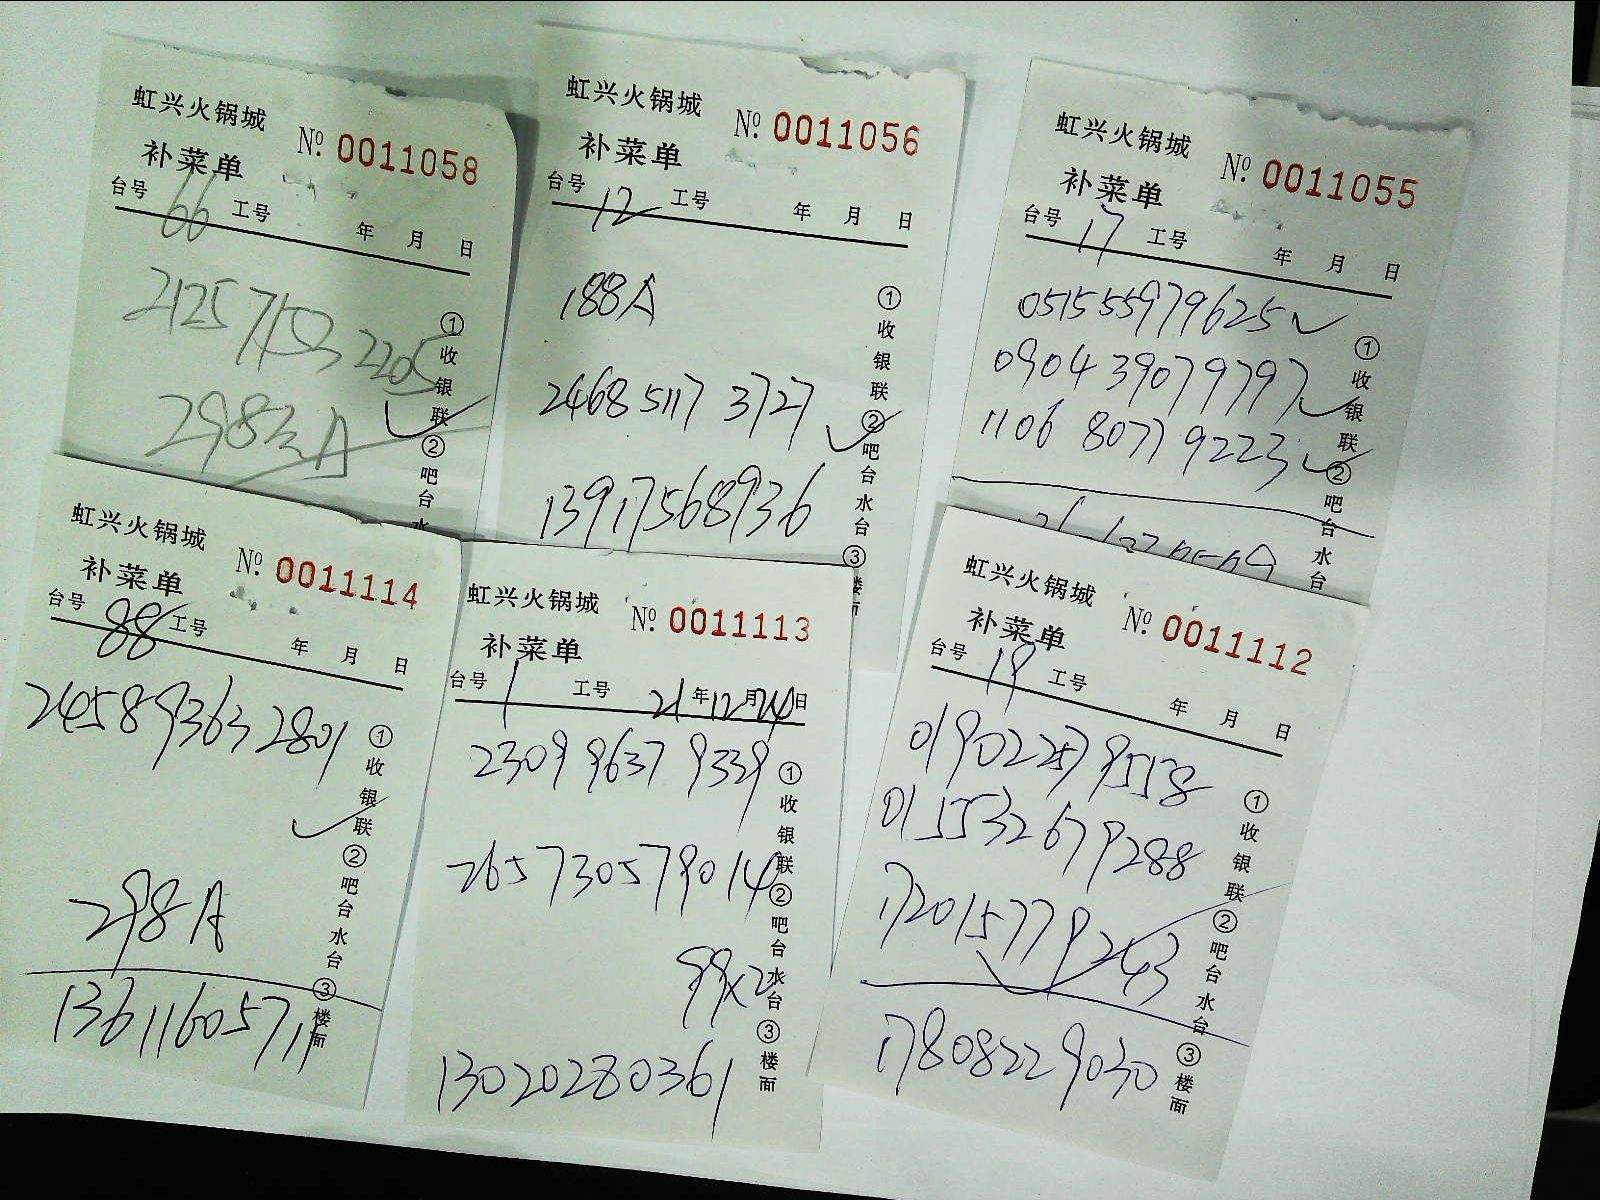 虹兴火锅城
补菜单
№ 0011058
台号 66 工号 年 月 日
2125 7153 2205
298元A
①收银联②吧台水
虹兴火锅城
补菜单
№ 0011056
台号 12 工号 年 月 日
188A
2468 5117 3727
13917568936
①收银联②吧台水台③楼面
虹兴火锅城
补菜单
№ 0011055
台号 17 工号 年 月 日
051555979625
0904 39079797
1106 8077 9223
①收银联②吧台水台
虹兴火锅城
补菜单
№ 0011114
台号 88 工号 年 月 日
245893632801
298A
13611605711
①收银联②吧台水台③楼面
虹兴火锅城
补菜单
№ 0011113
台号 1 工号 21年12月24日
2309 9637 9339
265730579014
99x2
13020280361
①收银联②吧台水台③楼面
虹兴火锅城
补菜单
№ 0011112
台号 19 工号 年 月 日
019022579558
015532679288
172015779243
17808229030
①收银联②吧台水台③楼面